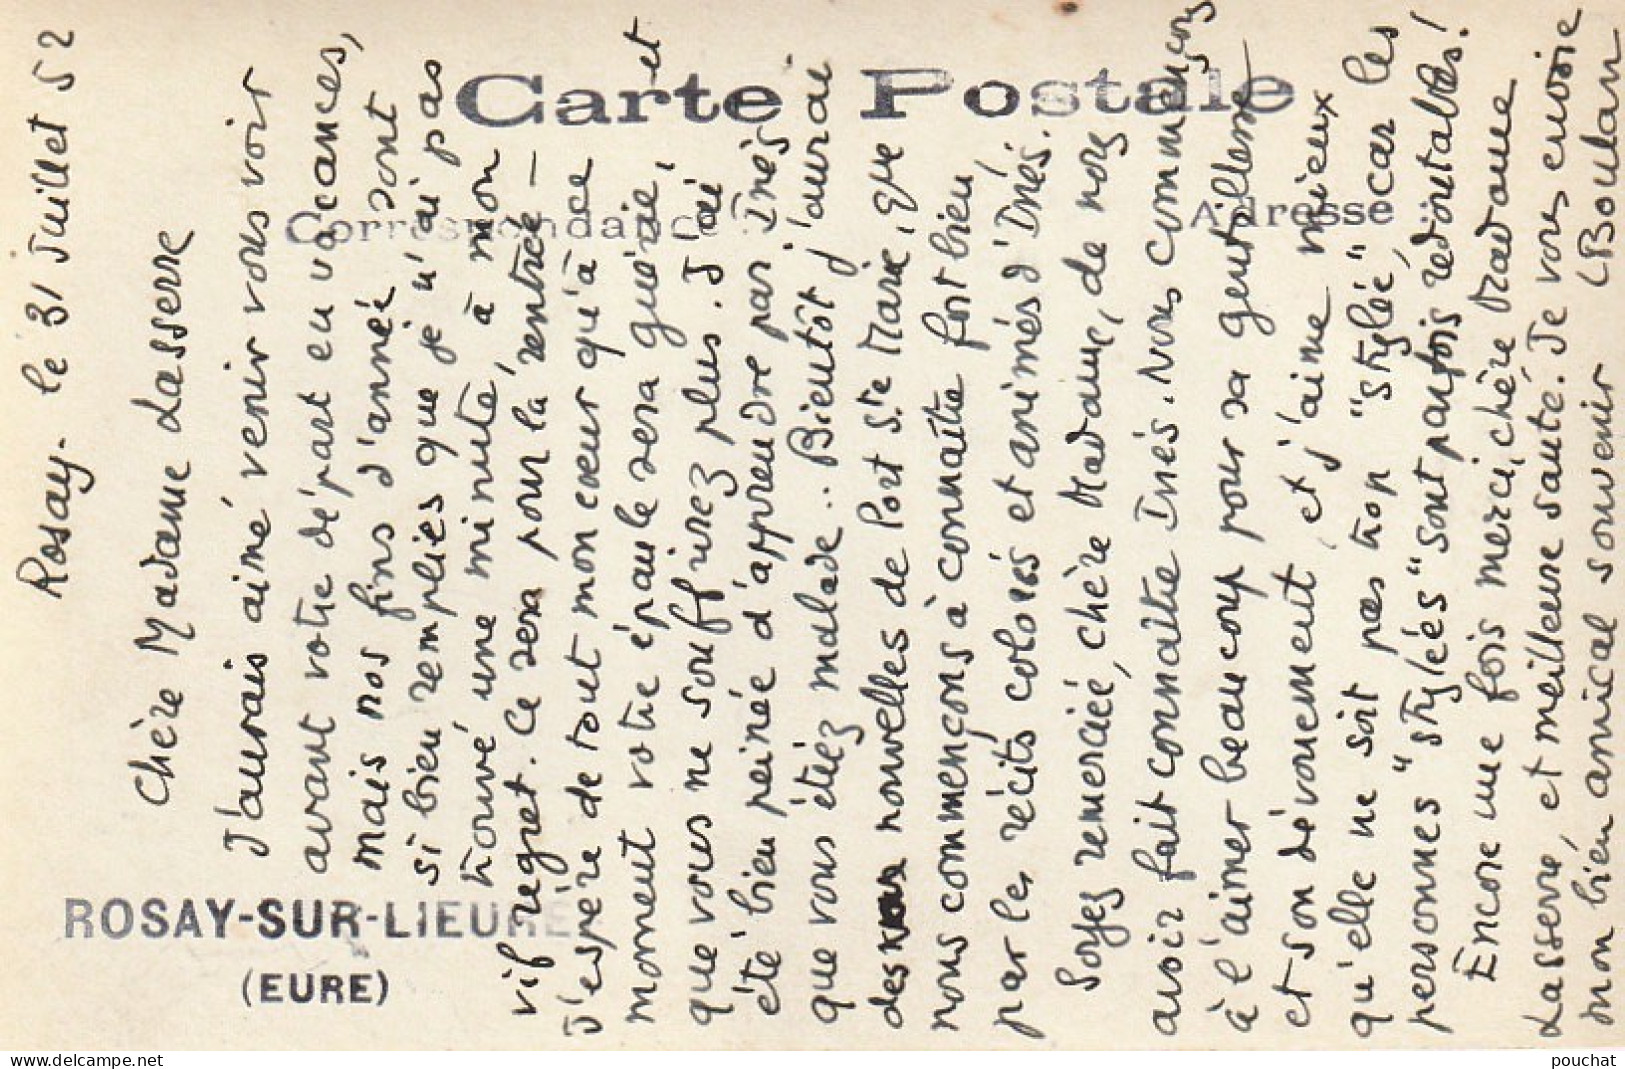 Carte Postale
Correspondance
Adresse
ROSAY-SUR-LIEURE
(EURE)
Rosay. le 31 Juillet 52
Chère Madame Lasserre
J'aurais aimé venir vous voir
avant votre départ en vacances,
mais nos fins d'année sont
si bien remplies que je n'ai pas
trouvé une minute, à mon
vif regret. Ce sera pour la rentrée —
J'espère de tout mon coeur qu'à ce
moment votre épaule sera guérie, et
que vous ne souffrirez plus. J'ai
été bien peinée d'apprendre par Inès
que vous étiez malade.. Bientôt j'aurai
des nouvelles de Port Ste Marie, que
nous commençons à connaître fort bien
par les récits colorés et animés d'Inès.
Soyez remerciée, chère Madame, de nous
avoir fait connaître Inès. Nous commençons
à l'aimer beaucoup pour sa gentillesse
et son dévouement, et j'aime mieux
qu'elle ne soit pas trop "stylée", car les
personnes "stylées" sont parfois redoutables!
Encore une fois merci, chère Madame
Lasserre, et meilleure santé. Je vous envoie
mon bien amical souvenir LBoulan
pouchat